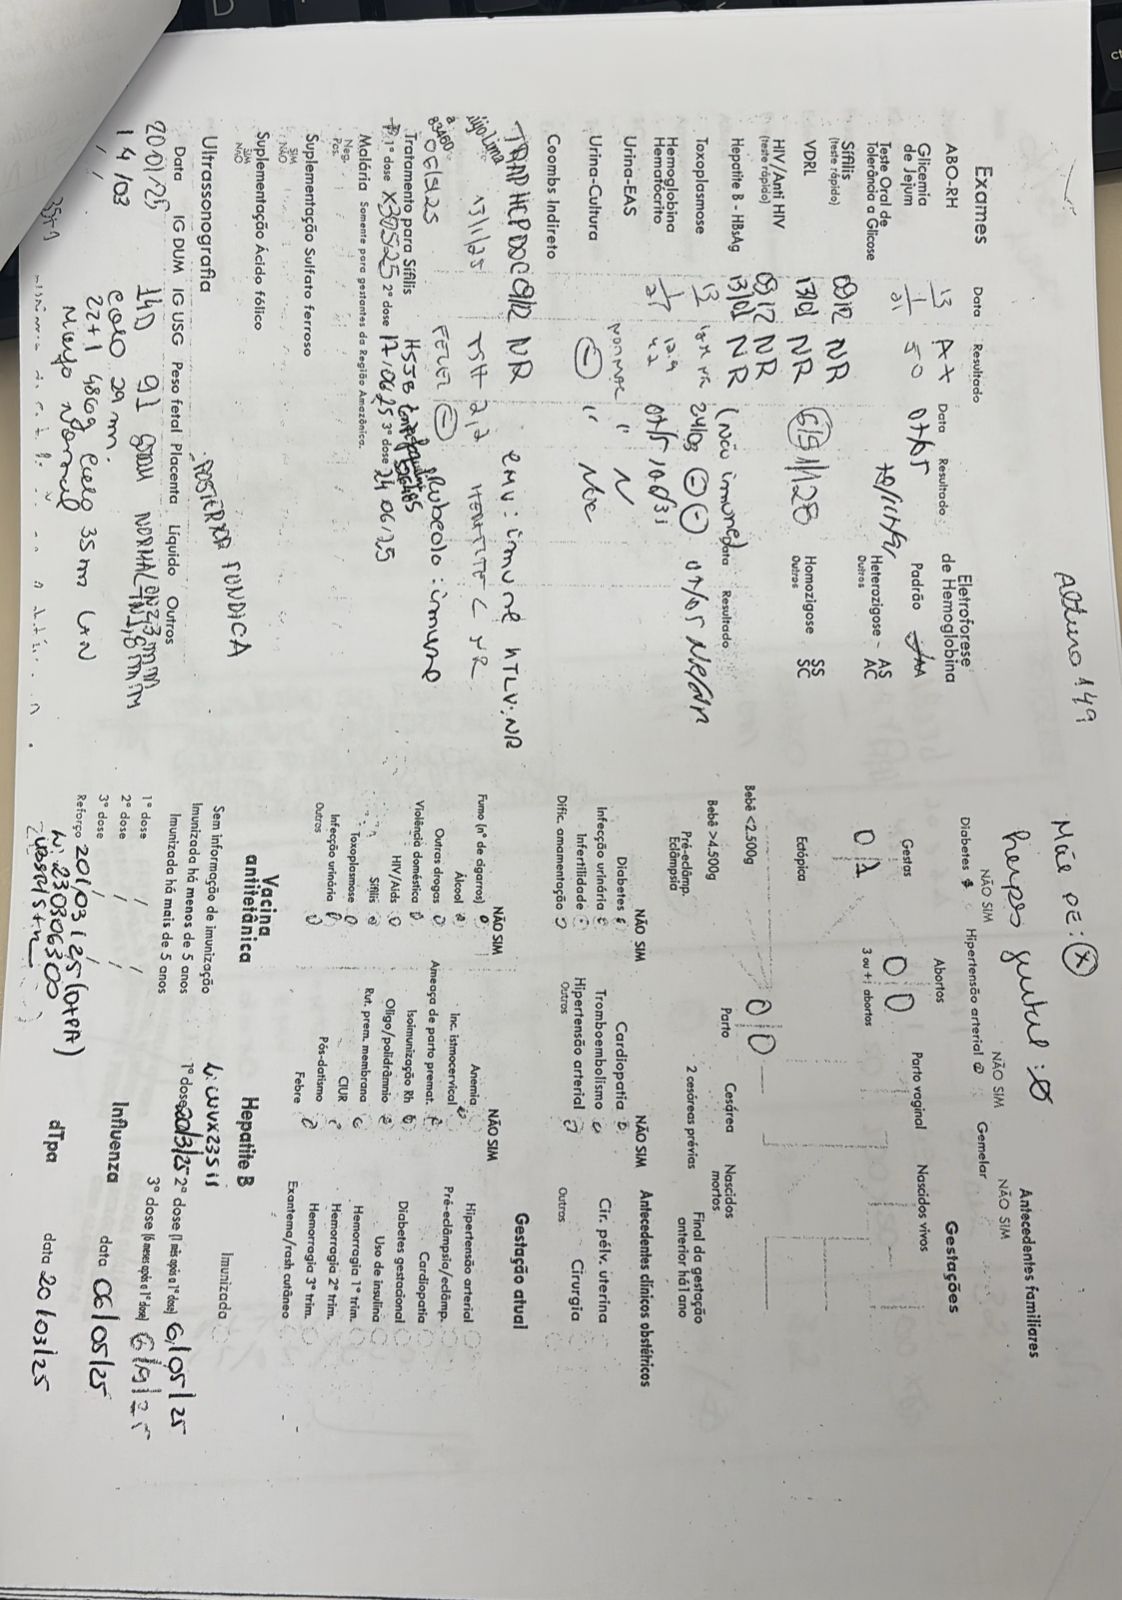 Altura 149
Mãe PE: (x)
herpes genital: Ø
Exames
Data Resultado Data Resultado
ABO-RH 13/1 A+
Glicemia de Jejum 21 80 07/05
Teste Oral de Tolerância a Glicose
Sífilis (teste rápido) 09/12 NR
VDRL 13/01 NR 6/5 1/128
HIV/Anti HIV (teste rápido) 09/12 NR
Hepatite B - HBsAg 13/01 NR (Não imune)
Data Resultado
Toxoplasmose 13 IgM NR 24/03 (-) (-) 07/05 NR/NR
Hemoglobina Hematócrito 12.9 42 07/5
Urina-EAS normal " N
Urina-Cultura (-) " Neg
Coombs Indireto
NR CMV: imune HTLV: NR
13/1/25 TSH 2,2 HEPATITE C NR
06/5/25 (-) Rubeola: imune
Tratamento para Sífilis
1ª dose 2ª dose 17/06/25 3ª dose 24 06/25
Malária Somente para gestantes da Região Amazônica.
Neg. Pos.
Suplementação Sulfato ferroso
SIM NÃO
Suplementação Ácido fólico
SIM NÃO
Ultrassonografia POSTERIOR FUNDICA
Data IG DUM IG USG Peso fetal Placenta Líquido Outros
20/01/25 14D 91 NORMAL
14/03 colo 29 mm.
22+1 486g colo 35 m LAN
Morfo Normal
Eletroforese de Hemoglobina
Padrão AA
Heterozigose - AS AC
Outros
Homozigose SS SC
Outros
Antecedentes familiares
NÃO SIM NÃO SIM NÃO SIM
Diabetes Hipertensão arterial Gemelar
Gestações
Gestas Abortos Parto vaginal Nascidos vivos
01 00
3 ou + abortos
Ectópica
00
Bebê <2.500g Parto Cesárea Nascidos mortos
Bebê >4.500g 2 cesáreas prévias Final da gestação anterior há 1 ano
Pré-eclâmp. Eclâmpsia
Antecedentes clínicos obstétricos
NÃO SIM NÃO SIM
Diabetes Cardiopatia Cir. pélv. uterina
Infecção urinária Tromboembolismo Cirurgia
Infertilidade Hipertensão arterial Outros
Dific. amamentação Outros
Gestação atual
NÃO SIM NÃO SIM
Fumo (nº de cigarros) Anemia Hipertensão arterial
Álcool Inc. istmocervical Pré-eclâmpsia/eclâmp.
Outras drogas Ameaça de parto premat. Cardiopatia
Violência doméstica Isoimunização Rh Diabetes gestacional
HIV/Aids Oligo/polidrâmnio Uso de insulina
Sífilis Rut. prem. membrana Hemorragia 1º trim.
Toxoplasmose CIUR Hemorragia 2º trim.
Infecção urinária Pós-datismo Hemorragia 3º trim.
Outros Febre Exantema/rash cutâneo
Vacina antitetânica
Sem informação de imunização
Imunizada há menos de 5 anos
Imunizada há mais de 5 anos
1ª dose / /
2ª dose / /
3ª dose / /
Reforço 20/03/25 (DTPA)
Hepatite B Imunizada
1ª dose 20/3/25 2ª dose (1 mês após a 1ª dose) 6/05/25
3ª dose (6 meses após a 1ª dose) 6/9/25
Influenza data 06/05/25
dTpa data 20/03/25